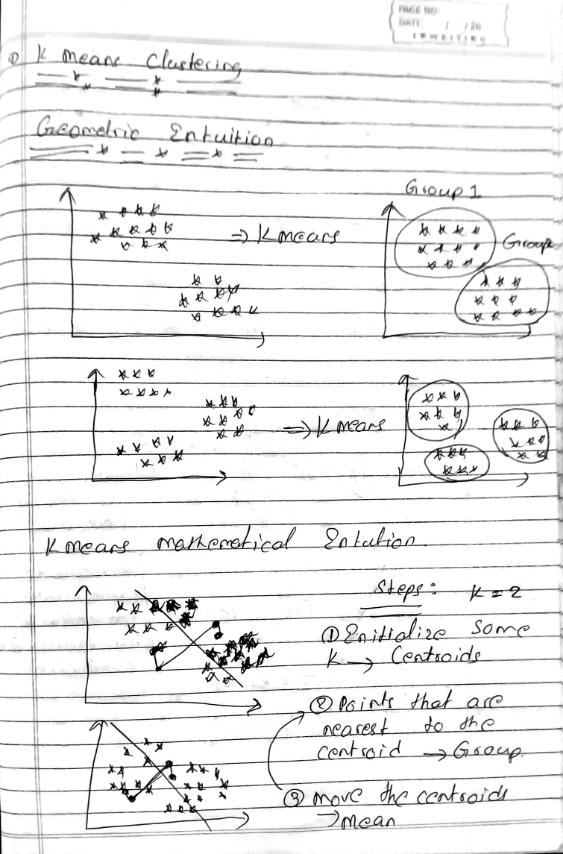 PAGE NO
DATE / /20
① K means Clustering
Geometric Entuition
Group 1
⇒ K means
Group
⇒ K means
K means mathematical Entution
Steps: K = 2
① Enitialize some
K → Centroids
② Points that are
nearest to the
centroid → Group.
③ move the centroids
→ mean